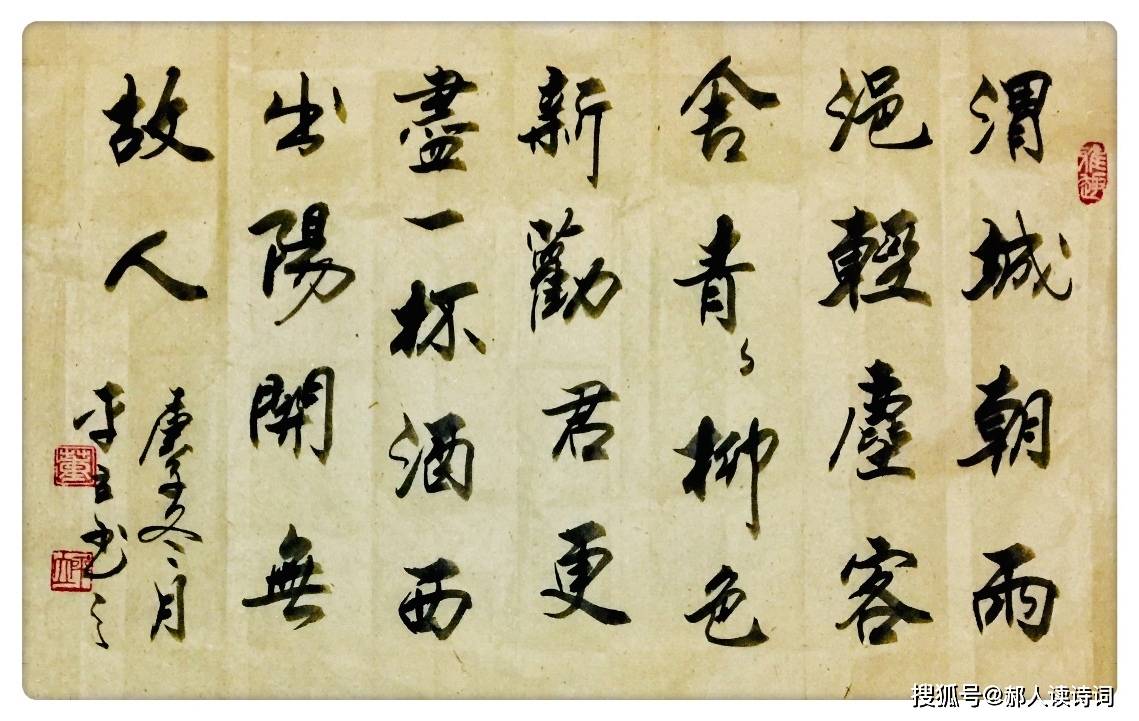 渭城朝雨
浥輕塵客
舍青々柳色
新勸君更
盡一杯酒西
出陽關無
故人
庚子冬月
书之
雅趣
董
搜狐号@郝人读诗词